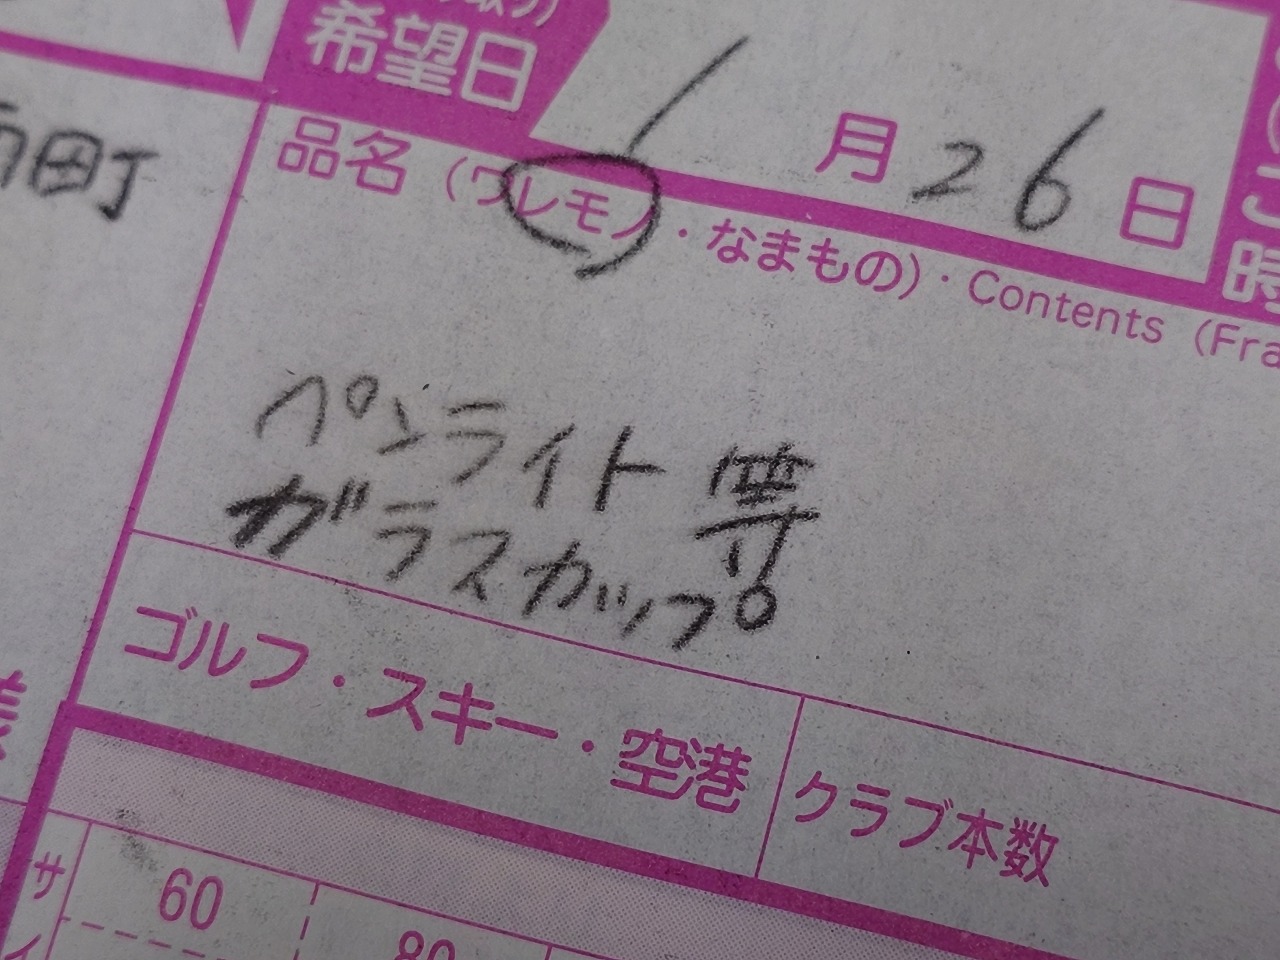 希望日
1月26日
町
品名（ワレモノ・なまもの）・Contents（Fra
ペンライト等
ガラスカップ
ゴルフ・スキー・空港
クラブ本数
サイ
60
80
時